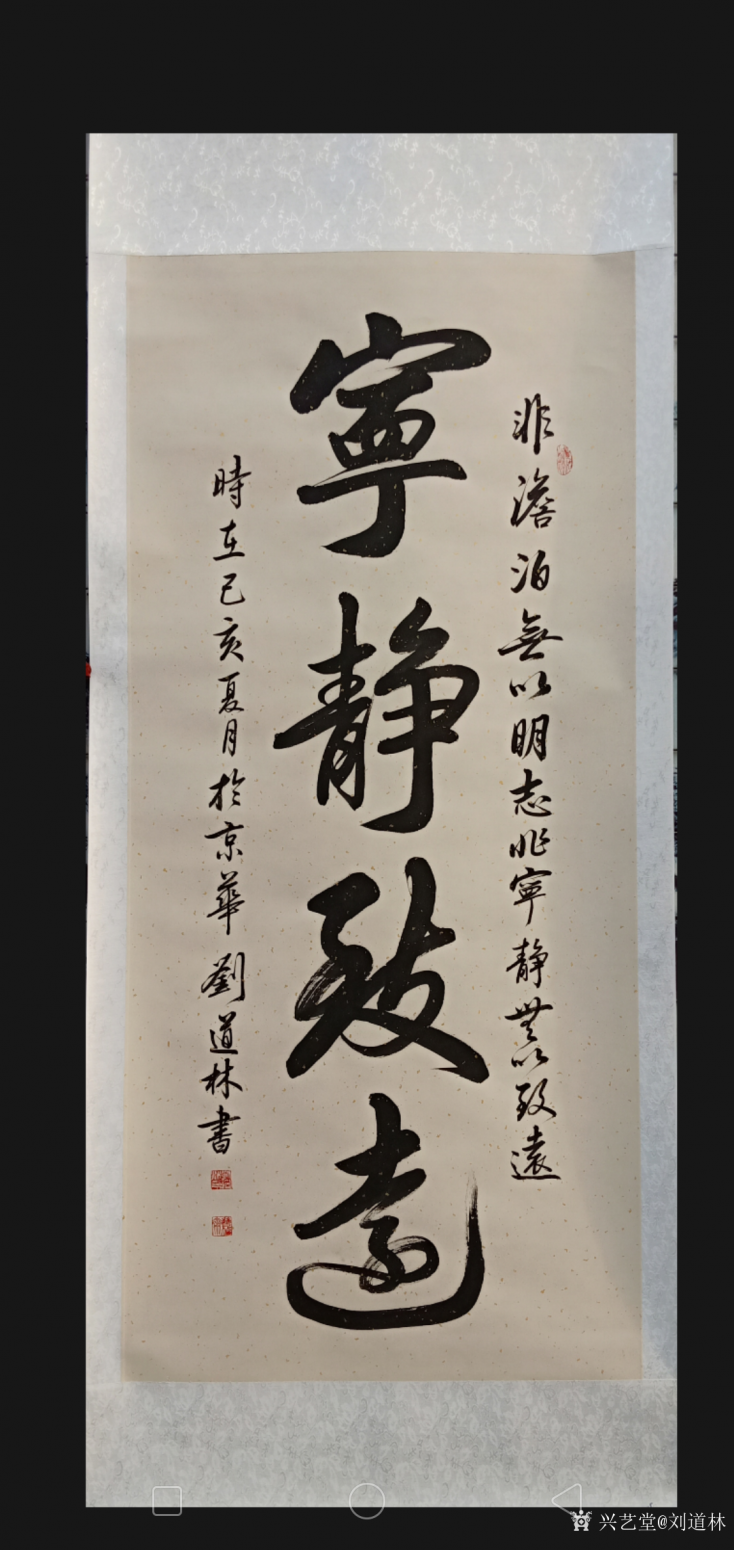 非澹泊無以明志非寧靜無以致遠
寧靜致遠
時在己亥夏月於京華劉道林書
兴艺堂@刘道林